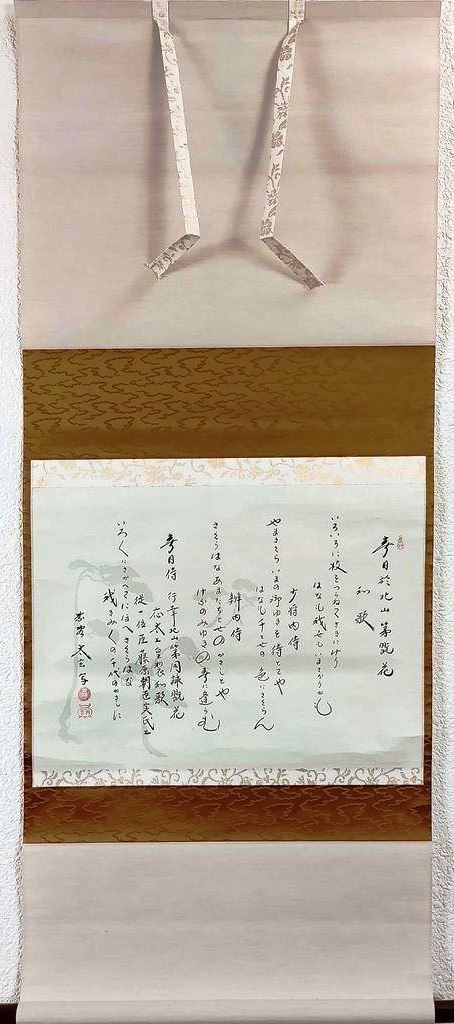 春日於北山第翫花
和歌
いろいろに枝をつらねてさきにけり
はなも我世もいまさかりかも
少将内侍
やまさくらいまの御ゆきを待とてや
はなも千とせの色にさくらん
辨内侍
さくらはなあまたちとせのかさしとや
けふのみゆきの春に逢らむ
春日侍 行幸北山第同詠翫花
応太上皇製和歌
従一位臣藤原朝臣実氏上
いろ〱にさかえてにほへさくらはな
我きみ〱の千代のかさしに